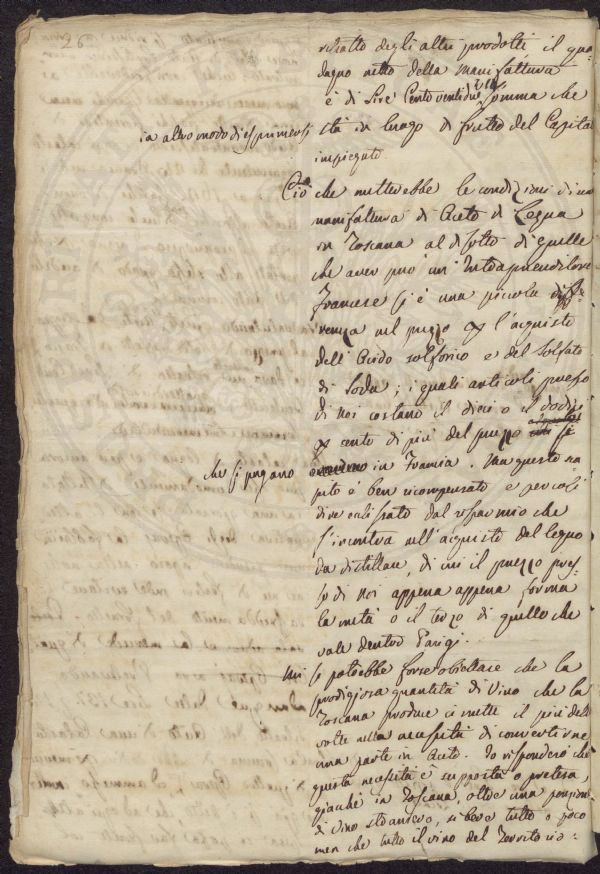 26
ritratto degli altri prodotti il gua-
dagno netto della manifattura
è di lire Cento ventidue somma che
in altro modo di esprimersi
sta in luogo di frutto del Capital
impiegato.
Ciò che metterebbe le condizioni di una
manifattura di Aceto di Legno
in Toscana al di sotto di quelle
che aver può un' Intraprenditore
Francese si è una piccola diffe-
renza nel prezzo per l'acquisto
dell' Acido solforico e del Solfato
di Soda; i quali articoli presso
di noi costano il dieci o il dodici
per cento di più del prezzo
che si pagano
in Francia. Ma questo
è ben ricompensato e per così
dire dal risparmio che
s'incontra nell'acquisto del legno
da distillare, di cui il prezzo pres-
so di noi appena appena forma
la metà o il terzo di quello che
vale dentro Parigi.
Mi si potrebbe forse obiettare che la
prodigiosa quantità di Vino che la
Toscana produce ci mette il più delle
volte nella necessità di convertirne
una parte in Aceto. Io risponderò che
questa necessità è supposta o pretesa,
giacchè in Toscana, oltre una porzione
di vino straniero, si beve tutto o poco
men che tutto il vino del Territorio.